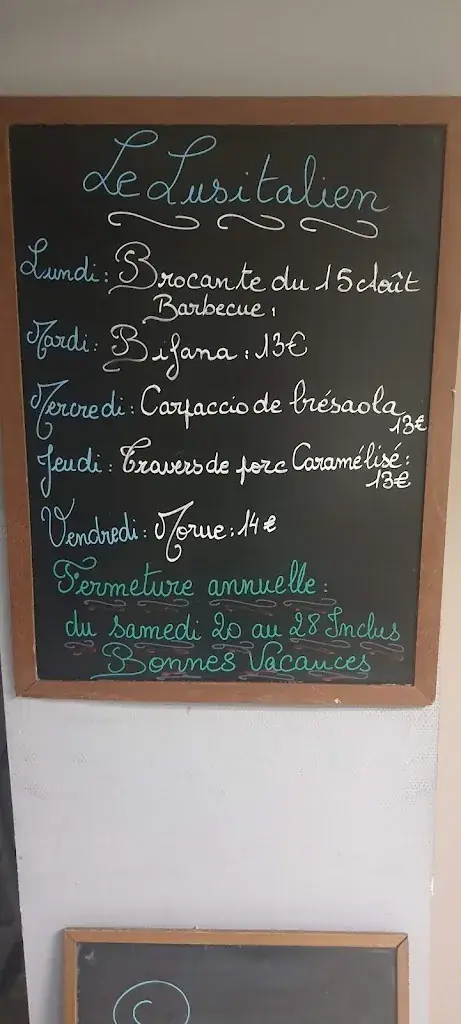 Le Lusitalien
Lundi: Brocante du 15 Août
Barbecue:
Mardi: Bifana: 13€
Mercredi: Carpaccio de brésaola
13€
Jeudi: Travers de porc Caramélisé:
13€
Vendredi: Morue: 14€
Fermeture annuelle:
du samedi 20 au 28 Inclus
Bonnes Vacances